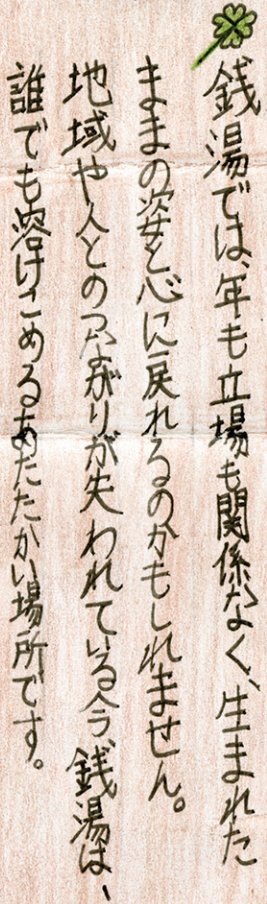 銭湯では、年も立場も関係なく、生まれた
ままの姿と心に戻れるのかもしれません。
地域や人とのつながりが失われている今、銭湯は、
誰でも溶けこめるあたたかい場所です。